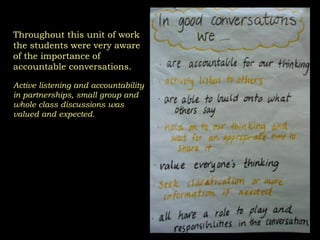 Throughout this unit of work
the students were very aware
of the importance of
accountable conversations.
Active listening and accountability
in partnerships, small group and
whole class discussions was
valued and expected.
In good conversations
we __
· are accountable for our thinking
· actively listen to others
· are able to build onto what
others say
· hold on to our thinking and
wait for an appropriate time to
share it
· value everyone's thinking
· seek clarification or more
information if needed
· all have a role to play and
responsibilities in the conversation